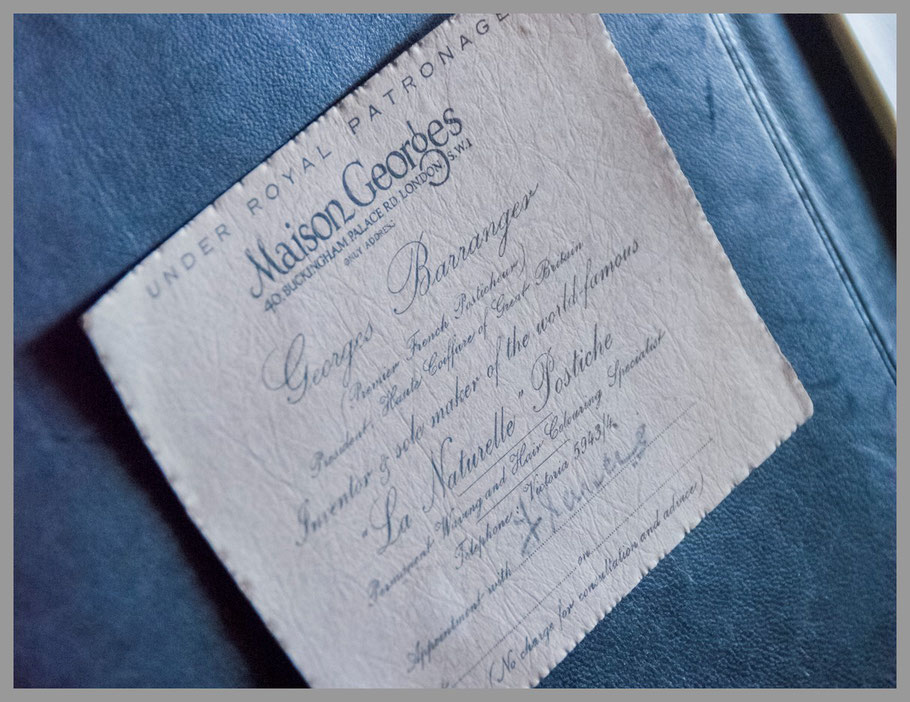 UNDER ROYAL PATRONAGE
Maison Georges
40. BUCKINGHAM PALACE RD. LONDON, S.W.1
ONLY ADDRESS
Georges Barranger
(Premier French Posticheur)
President: Haute Coiffure of Great Britain
Inventor & sole maker of the world-famous
"La Naturelle" Postiche
Permanent Waving and Hair Colouring Specialist
Telephone: Victoria 5943/4.
Appointment with
on
(No charge for consultation and advice)